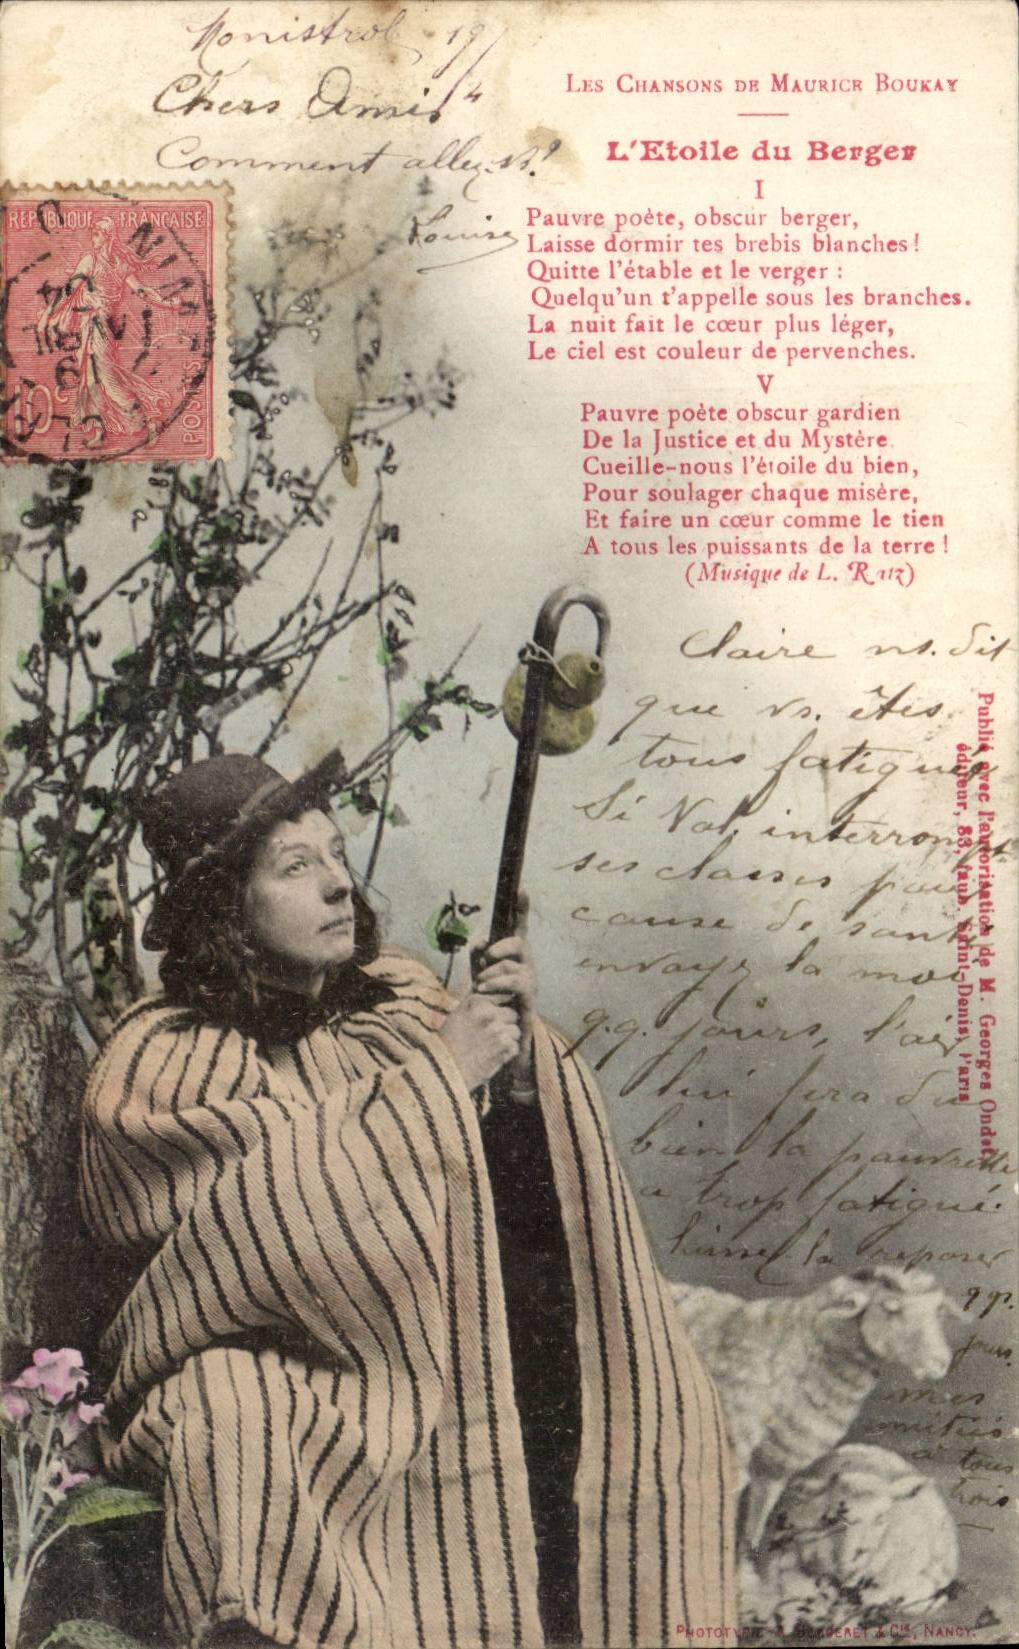 Monistrol 19/4
Chers Amis
Comment allez-vs?
Louise
LES CHANSONS DE MAURICE BOUKAY
L'Etoile du Berger
I
Pauvre poète, obscur berger,
Laisse dormir tes brebis blanches !
Quitte l'étable et le verger :
Quelqu'un t'appelle sous les branches.
La nuit fait le cœur plus léger,
Le ciel est couleur de pervenches.
V
Pauvre poète obscur gardien
De la Justice et du Mystère.
Cueille-nous l'étoile du bien,
Pour soulager chaque misère,
Et faire un cœur comme le tien
A tous les puissants de la terre !
(Musique de L. Ratz)
REPUBLIQUE FRANÇAISE
10
POSTES
Claire ns. dit
que vs. êtes
tous fatigués
Si Val. interrompt
ses classes pour
cause de santé
envoyez la moi
q.q. jours, l'air
lui fera du
bien la pauvrette
a trop fatigué.
laissez la reposer
q qs.
jours.
mes
amitiés
à tous
trois
Publié avec l'autorisation de M. Georges Ondet,
éditeur, 83, faub. Saint-Denis, Paris
PHOTOTYPIE A. BERGERET & Cie, NANCY.